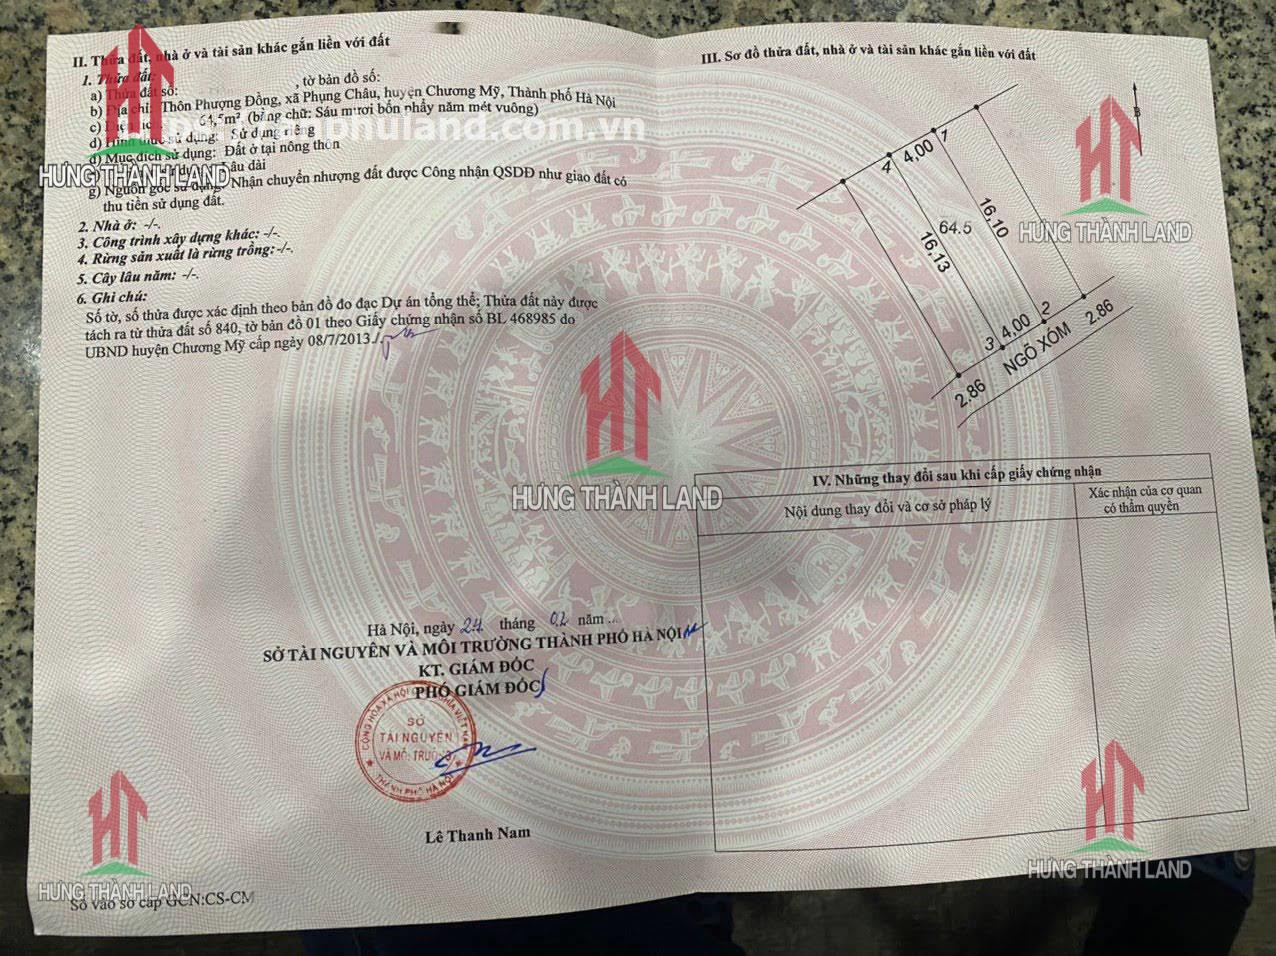 II. Thửa đất, nhà ở và tài sản khác gắn liền với đất
1. Thửa đất:
a) Thửa đất số: , tờ bản đồ số:
b) Địa chỉ: Thôn Phượng Đồng, xã Phụng Châu, huyện Chương Mỹ, Thành phố Hà Nội
c) Diện tích: 64,5m², (bằng chữ: Sáu mươi bốn phẩy năm mét vuông)
d) Hình thức sử dụng: Sử dụng riêng
đ) Mục đích sử dụng: Đất ở tại nông thôn
sử dụng: Lâu dài
g) Nguồn gốc sử dụng: Nhận chuyển nhượng đất được Công nhận QSDĐ như giao đất có
thu tiền sử dụng đất.
2. Nhà ở: -/-.
3. Công trình xây dựng khác: -/-.
4. Rừng sản xuất là rừng trồng: -/-.
5. Cây lâu năm: -/-.
6. Ghi chú:
Số tờ, số thửa được xác định theo bản đồ đo đạc Dự án tổng thể; Thửa đất này được
tách ra từ thửa đất số 840, tờ bản đồ 01 theo Giấy chứng nhận số BL 468985 do
UBND huyện Chương Mỹ cấp ngày 08/7/2013./.
Hà Nội, ngày 24 tháng 02 năm ...
SỞ TÀI NGUYÊN VÀ MÔI TRƯỜNG THÀNH PHỐ HÀ NỘI
KT. GIÁM ĐỐC
PHÓ GIÁM ĐỐC
SỞ
TÀI NGUYÊN
VÀ MÔI TRƯỜNG
THÀNH PHỐ HÀ NỘI
Lê Thanh Nam
Số vào sổ cấp GCN:CS-CM
III. Sơ đồ thửa đất, nhà ở và tài sản khác gắn liền với đất
B
1
4,00
4
16,10
64.5
16,13
2
4,00
3
2.86
NGÕ XÓM
2.86
IV. Những thay đổi sau khi cấp giấy chứng nhận
Nội dung thay đổi và cơ sở pháp lý
Xác nhận của cơ quan
có thẩm quyền
HƯNG THÀNH LAND
HƯNG THÀNH LAND
HƯNG THÀNH LAND
HƯNG THÀNH LAND
HƯNG THÀNH LAND